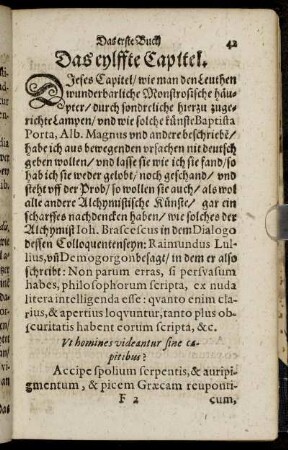 Das erste Buch 42
Das eylffte Capitel.
DIeses Capitel / wie man den Leuthen
wunderbarliche Monströsische häu-
pter / durch sonderliche hierzu zuge-
richte Lampen / und wie solche künste Baptista
Porta, Alb. Magnus vnd andere beschriebẽ /
habe ich aus bewegenden vrsachen nit deutsch
geben wollen / vnd lasse sie wie ich sie fand / so
hab ich sie weder gelobt / noch geschand / vnd
steht vff der Prob / so wollen sie auch / als wol
alle andere Alchymistische Künste / gar ein
scharffes nachdencken haben / wie solches der
Alchymist Ioh. Brascescus in dem Dialogo
dessen Colloquenten seyn: Raimundus Lul-
lius, vñ Demogorgon besagt / in dem er also
schreibt: Non parum erras, si persvasum
habes, philosophorum scripta, ex nuda
litera intelligenda esse: qvanto enim cla-
rius, & apertius loqvuntur, tanto plus ob-
scuritatis habent eorum scripta, &c.
Vt homines videantur sine ca-
pitibus?
Accipe spolium serpentis, & auripi-
gmentum, & picem Græcam reuponti-
F 2 cum,